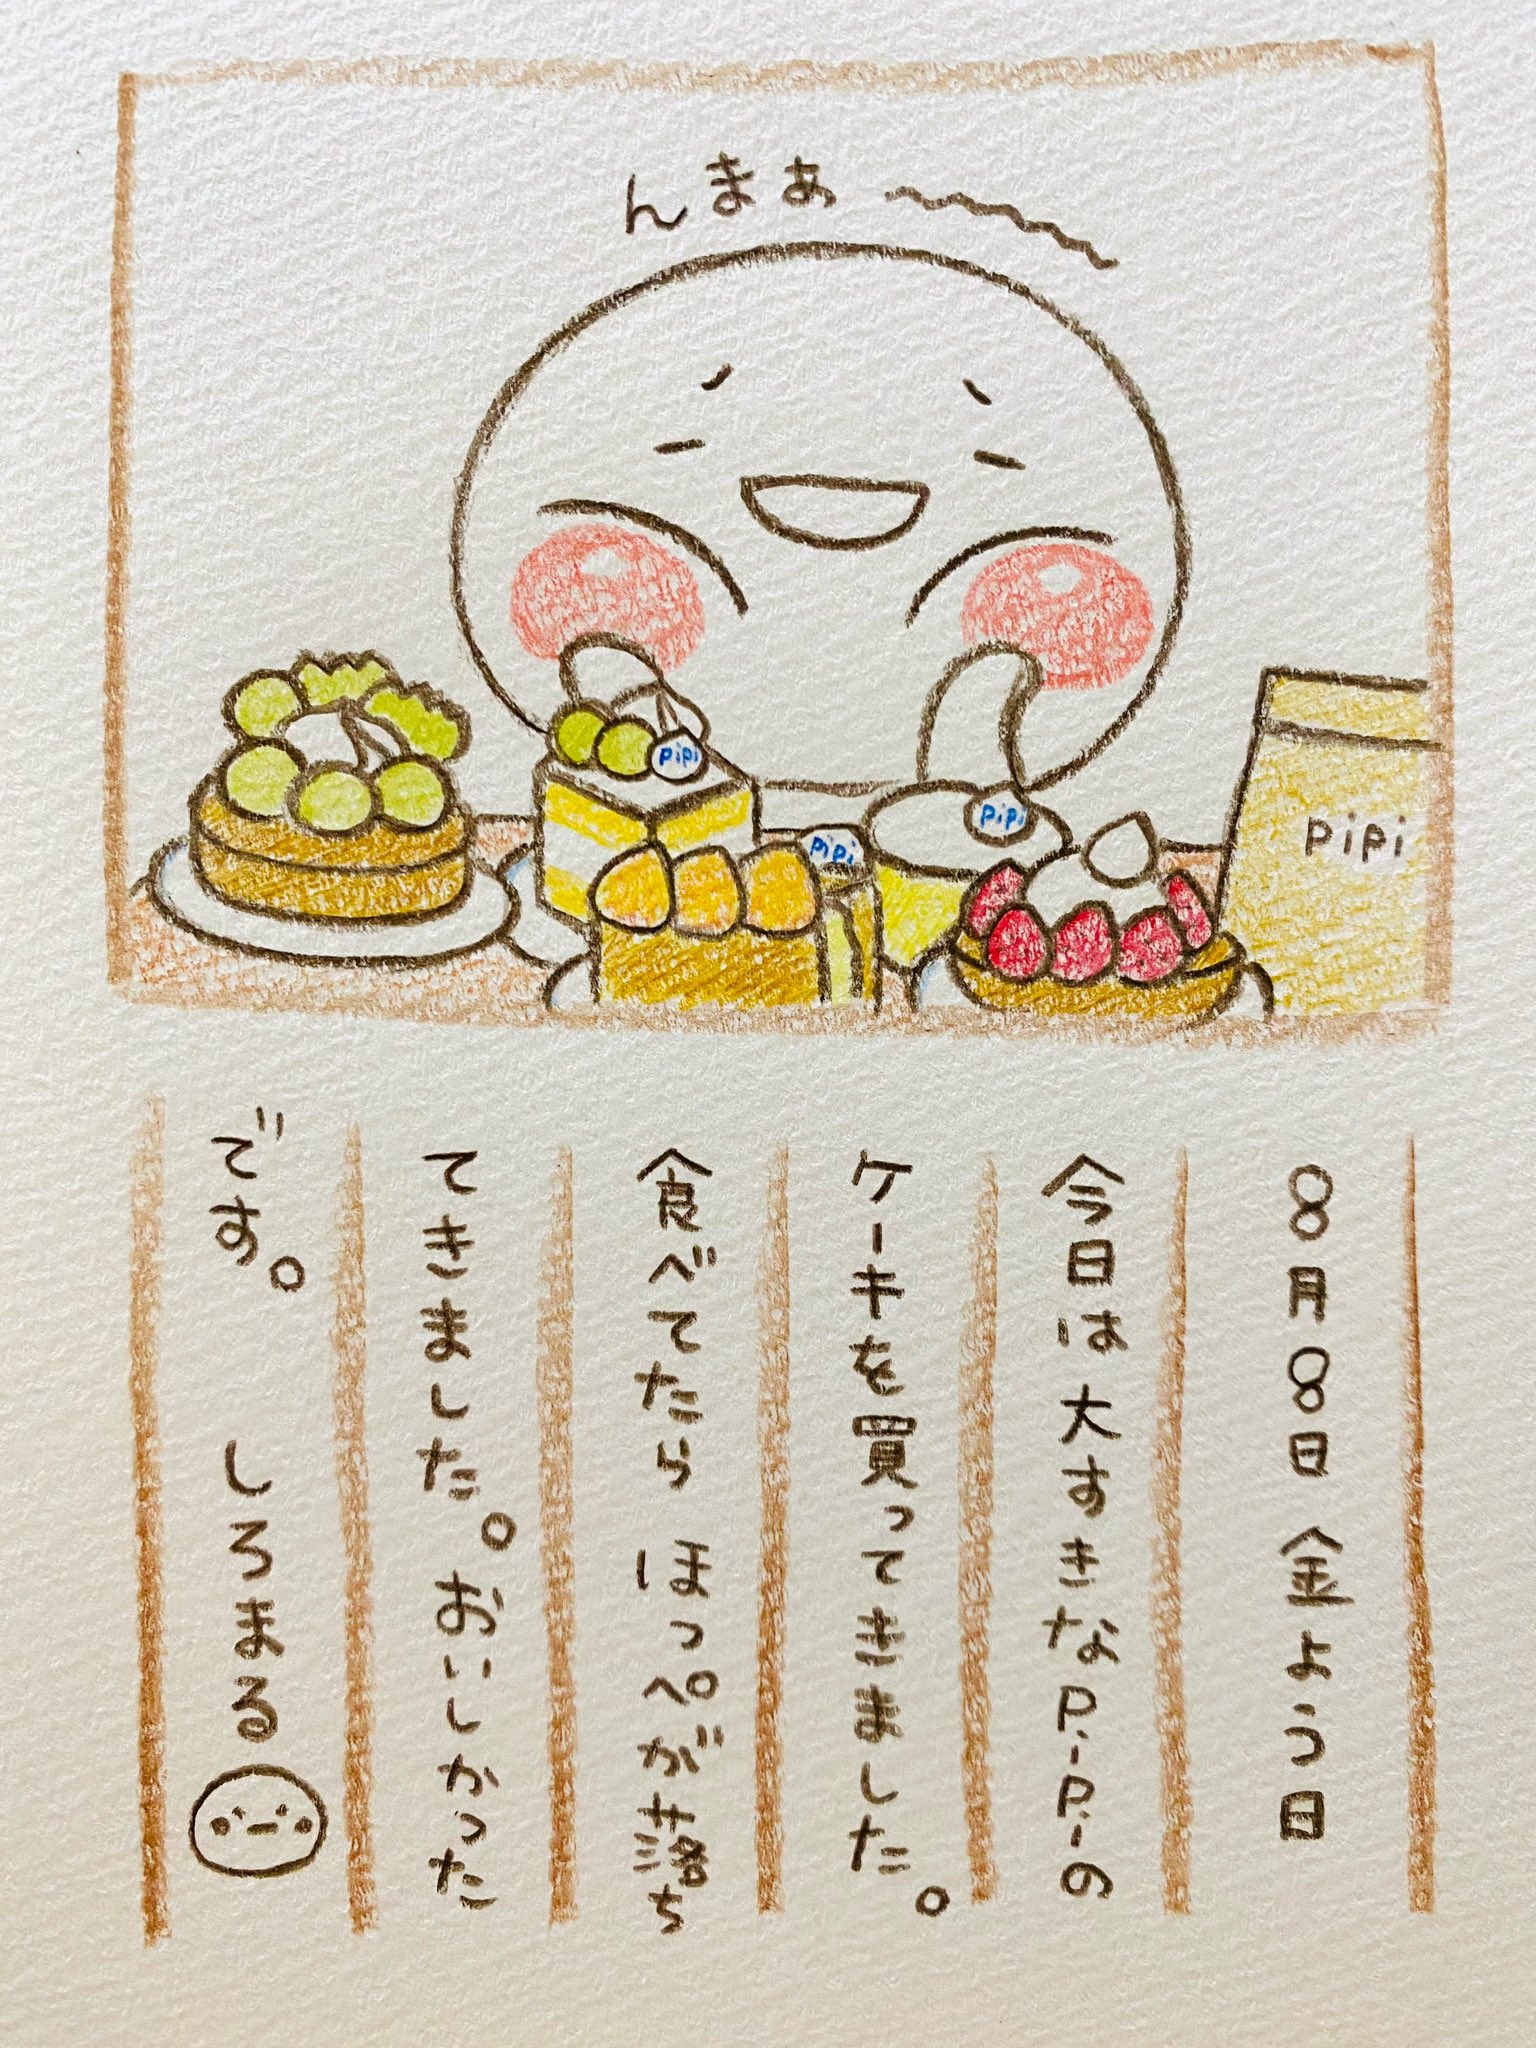 んまぁ〜〜
pipi
pipi
pipi
pipi
8月8日 金よう日
今日は大すきなPiPiの
ケーキを買ってきました。
食べてたらほっぺが落ち
てきました。おいしかった
です。 しろまる